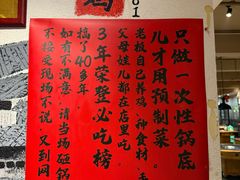 只做一次性锅底
儿才用预制菜
老板自己养鸡、种食材、
父母娃儿都在店里吃
3年荣登必吃榜
搞了40多年
如有不满意，请当场砸锅
不接受现场不说，又到网